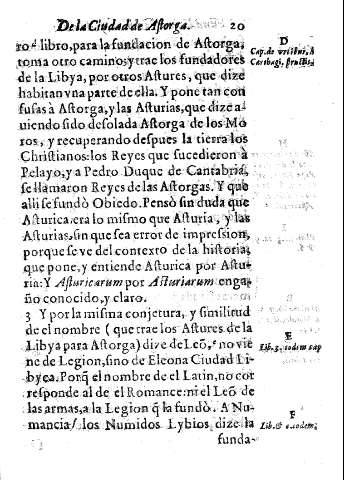 De la Ciudad de Astorga. 20
ro.ᵈ libro, para la fundacion de Astorga,
toma otro camino y trae los fundadores
de la Libya, por otros Astures, que dize
habitan vna parte de ella. Y pone tan con
fusas à Astorga, y las Asturias, que dize a-
uiendo sido desolada Astorga de los Mo
ros, y recuperando despues la tierra los
Christianos: los Reyes que sucedieron à
Pelayo, y a Pedro Duque de Cantabria,
se llamaron Reyes de las Astorgas. Y que
alli se fundò Obiedo. Pensò sin duda que
Asturica era lo mismo que Asturia, y las
Asturias, sin que sea error de impression,
porque se ve del contexto de la historia,
que pone, y entiende Asturica por Astu-
ria: Y Asturicarum por Asturiarum enga-
ño conocido, y claro.
3 Y por la misma conjetura, y similitud
de el nombre (que trae los Astures de la
Libya para Astorga) dize de Leõ, ᵉ no vie
ne de Legion, sino de Eleona Ciudad Li-
byca. Porq̃ el nombre de el Latin, no cor
responde al de el Romance: ni el Leõ de
las armas, a la Legion q̃ la fundò. A Nu-
mancia ᶠ los Numidos Lybios dize la
funda-
D
Cap. de vrsibus,
Carthagi,
E
Lib. 5. eodem cap
F
Lib. 6 eodem,